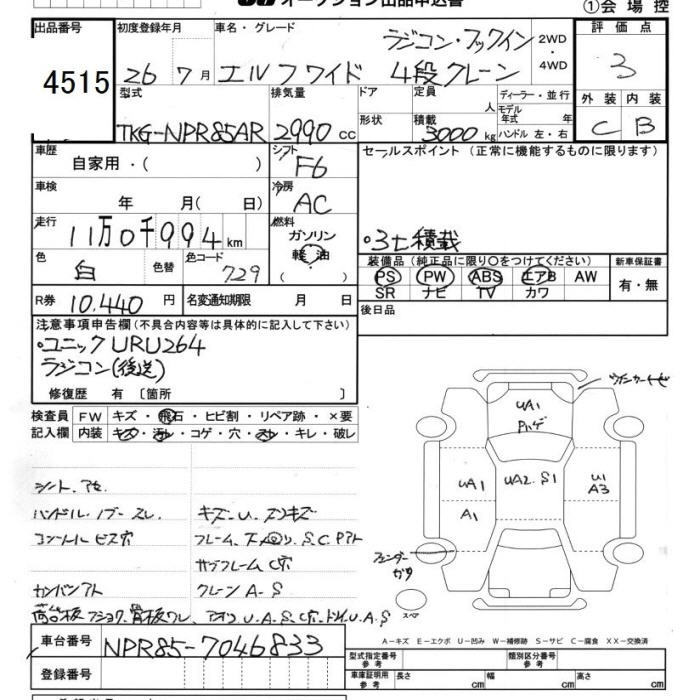 オークション出品申込書
①会場控
出品番号
4515
初度登録年月
26 7月
車名・グレード
ラジコン・フックイン
エルフワイド 4段クレーン
2WD
・
4WD
評価点
3
型式
TKG-NPR85AR
排気量
2990 cc
ドア
形状
定員
人
積載
3000 kg
ディーラー・並行
モデル
年式 年
ハンドル 左・右
外装 内装
C B
車歴
自家用・( )
シフト
F6
セールスポイント (正常に機能するものに限ります)
車検
年 月( 日)
冷房
AC
走行
11万0千994 km
燃料
ガソリン
軽油
( )
・3t積載
色
白
色替
色コード
729
装備品 (純正品に限り○をつけてください)
PS PW ABS エアB AW
SR ナビ TV カワ
新車保証書
有・無
R券 10,440 円
名変通知期限 月 日
後日品
注意事項申告欄(不具合内容等は具体的に記入して下さい)
・ユニックURU264
ラジコン(後送)
修復歴 有〔箇所 〕
検査員 FW キズ・飛石・ヒビ割・リペア跡・×要
記入欄 内装 キズ・汚れ・コゲ・穴・スレ・キレ・破レ
ウィンカーヒビ
UA1
Pハゲ
UA1
UA2.S1
U1
A3
A1
フェンダー
ガタ
スペア
ハンドル.ノブースレ
キズ-U.スリキズ
コンソールビス穴
サブフレームC穴
カンバンアト
クレーンA-S
A-キズ E-エクボ U-凹み W-補修跡 S-サビ C-腐食 XX-交換済
車台番号 NPR85-7046833
登録番号
型式指定番号
参考
類別区分番号
参考
車庫証明用
参考
長さ cm
幅 cm
高さ cm